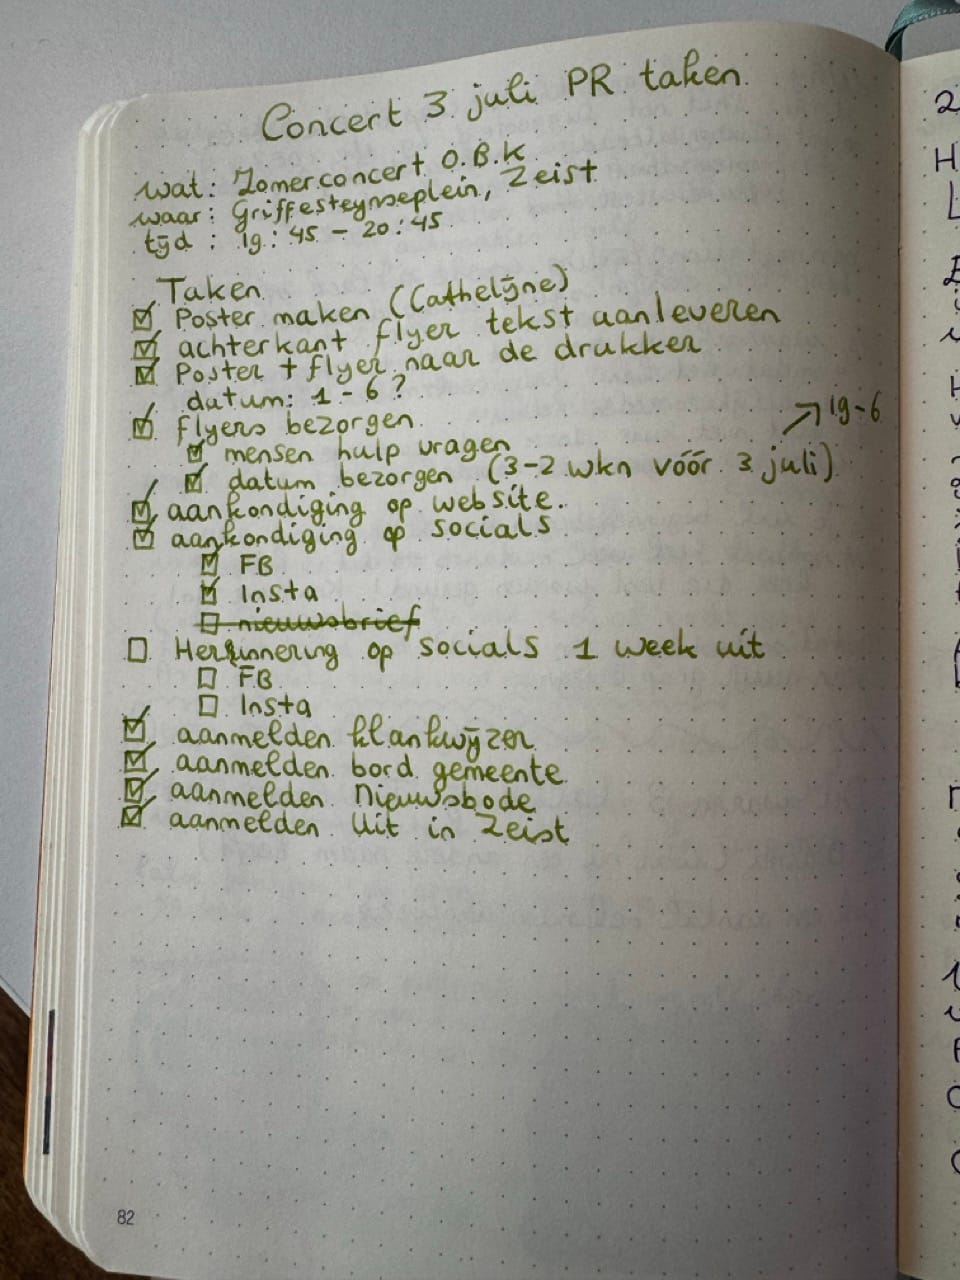 Concert 3 juli PR taken
wat: Zomerconcert O.B.K
waar: Griffesteynseplein, Zeist
tijd : 19:45 - 20:45
Taken
☑ Poster maken (Cathelijne)
☑ achterkant flyer tekst aanleveren
☑ Poster + flyer naar de drukker
datum: 1-6?
☑ flyers bezorgen
↗ 19-6
☑ mensen hulp vragen
☑ datum bezorgen (3-2 wkn vóór 3 juli)
☑ aankondiging op website.
☑ aankondiging op socials
☑ FB
☑ Insta
☐ ~~nieuwsbrief~~
☐ Herinnering op socials 1 week uit
☐ FB
☐ Insta
☑ aanmelden klankwijzer
☑ aanmelden bord gemeente
☑ aanmelden Nieuwsbode
☑ aanmelden Uit in Zeist
82